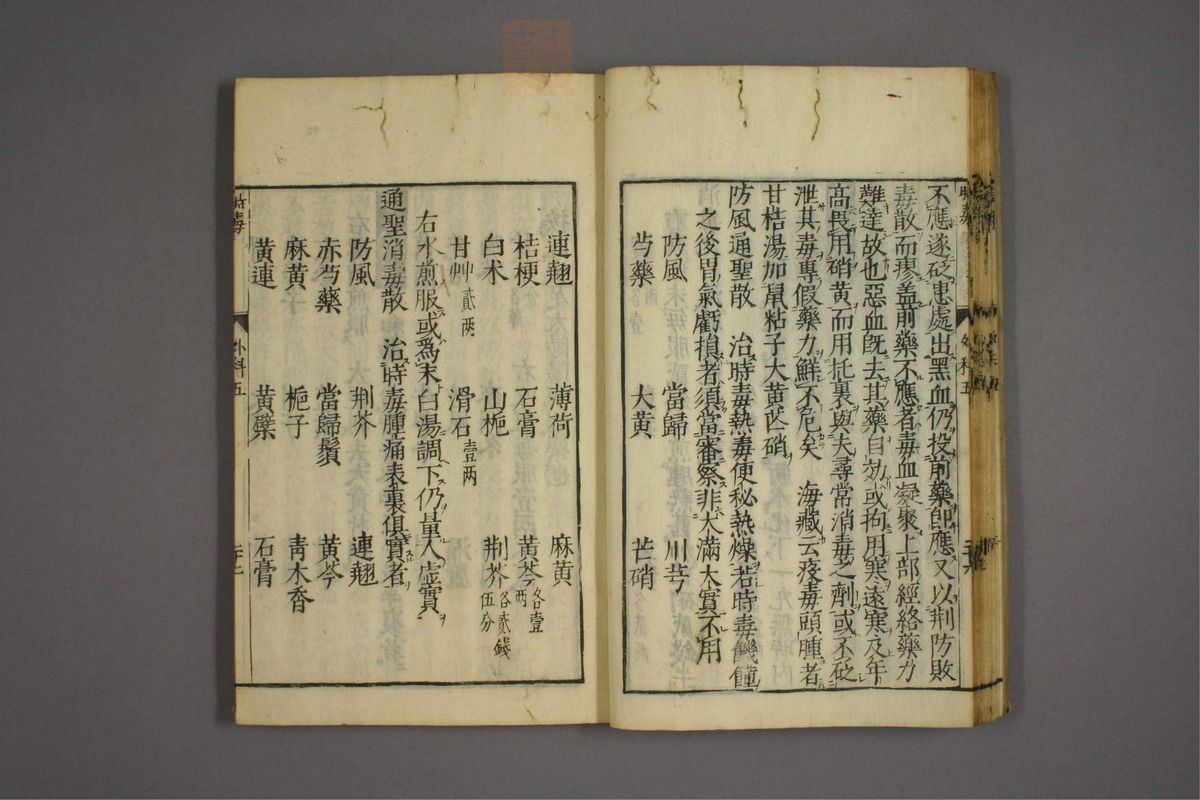 不應遂砭患處出黑血仍投前藥卽應又以荆防敗
毒散而瘳盖前藥不應者毒血凝聚上部經絡藥力
難達故也惡血旣去其藥自効或拘用寒遠寒及年
高畏用硝黄而用托裏與夫尋常消毒之劑或不砭
泄其毒專假藥力鮮不危矣 海藏云疫毒頭腫者
甘桔湯加鼠粘子大黄芒硝
防風通聖散 治時毒熱毒便秘熱燥若時毒饑饉
之後胃氣虧損者須當審察非大滿大實不用
防風 當歸 川芎
芍藥 大黄 芒硝
連翹 薄荷 麻黄
桔梗 石膏 黄芩各壹兩
白术 山梔 荆芥各貳錢伍分
甘艸貳兩 滑石壹兩
右水煎服或為末白湯調下仍量人虛實
通聖消毒散 治時毒腫痛表裏俱實者
防風 荆芥 連翹
赤芍藥 當歸鬚 黄芩
麻黄 梔子 青木香
黄連 黄蘗 石膏
時毒 外科五